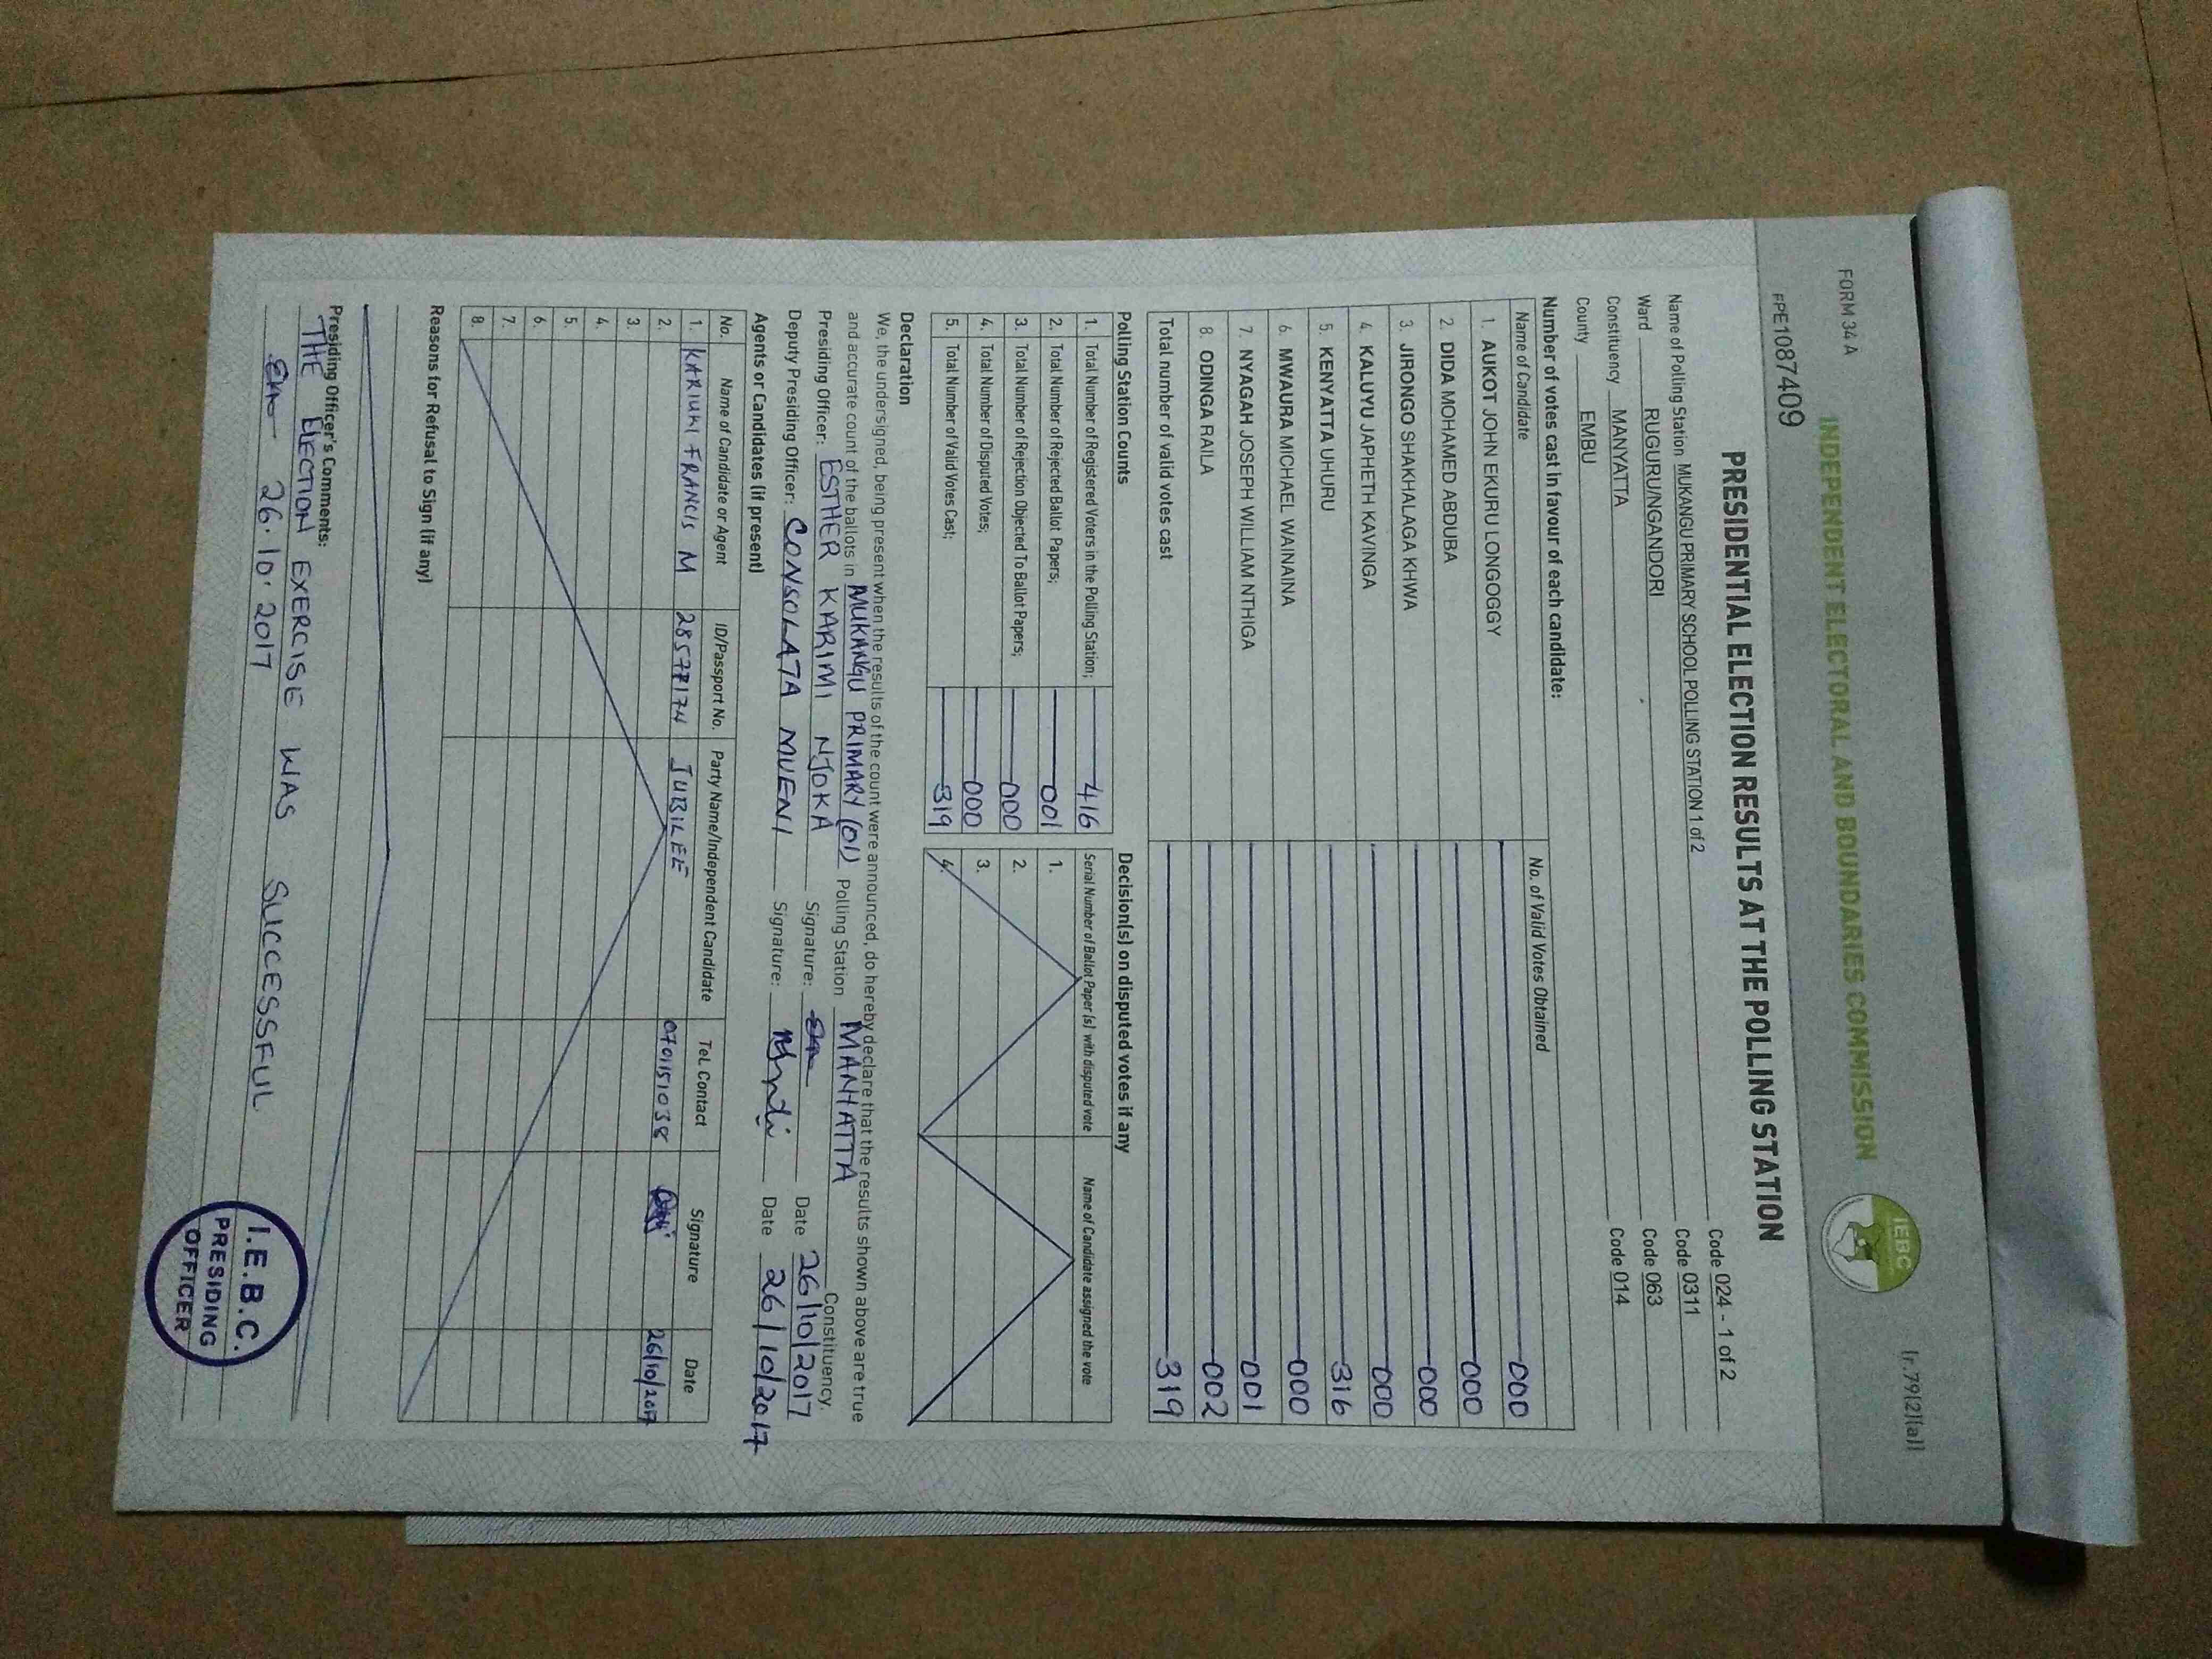 FORM 34 A
[r.79(2)(a)]
INDEPENDENT ELECTORAL AND BOUNDARIES COMMISSION
IEBC
FPE1087409
PRESIDENTIAL ELECTION RESULTS AT THE POLLING STATION
Name of Polling Station MUKANGU PRIMARY SCHOOL POLLING STATION 1 of 2 Code 024 - 1 of 2
Ward RUGURU/NGANDORI Code 0311
Constituency MANYATTA Code 063
County EMBU Code 014
Number of votes cast in favour of each candidate:
Name of Candidate No. of Valid Votes Obtained
1. AUKOT JOHN EKURU LONGOGGY 000
2. DIDA MOHAMED ABDUBA 000
3. JIRONGO SHAKHALAGA KHWA 000
4. KALUYU JAPHETH KAVINGA 000
5. KENYATTA UHURU 316
6. MWAURA MICHAEL WAINAINA 000
7. NYAGAH JOSEPH WILLIAM NTHIGA 001
8. ODINGA RAILA 002
Total number of valid votes cast 319
Polling Station Counts Decision(s) on disputed votes if any
1. Total Number of Registered Voters in the Polling Station; 416 Serial Number of Ballot Paper (s) with disputed vote Name of Candidate assigned the vote
2. Total Number of Rejected Ballot Papers; 001 1.
3. Total Number of Rejection Objected To Ballot Papers; 000 2.
4. Total Number of Disputed Votes; 000 3.
5. Total Number of Valid Votes Cast; 319 4.
Declaration
We, the undersigned, being present when the results of the count were announced, do hereby declare that the results shown above are true
and accurate count of the ballots in MUKANGU PRIMARY (01) Polling Station MANYATTA Constituency.
Presiding Officer: ESTHER KARIMI NJOKA Signature: Date 26/10/2017
Deputy Presiding Officer: CONSOLATA MUENI Signature: Date 26/10/2017
Agents or Candidates (if present)
No. Name of Candidate or Agent ID/Passport No. Party Name/Independent Candidate Tel. Contact Signature Date
1. KARIUKI FRANCIS M 28577174 JUBILEE 0701151038 26/10/2017
2.
3.
4.
5.
6.
7.
8.
Reasons for Refusal to Sign (if any)
Presiding Officer's Comments:
THE ELECTION EXERCISE WAS SUCCESSFUL
26.10.2017
I.E.B.C.
PRESIDING
OFFICER